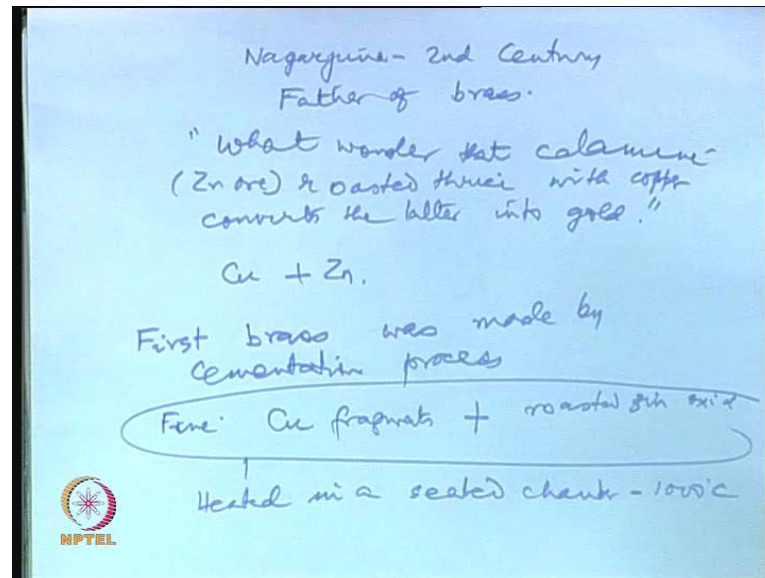 Nagarjuna - 2nd Century
Father of brass.
"What wonder that calamine
(Zn ore) roasted thrice with copper
converts the latter into gold."
Cu + Zn.
First brass was made by
Cementation process
Fine Cu fragments + roasted
Heated in a sealed - 1000°C
NPTEL